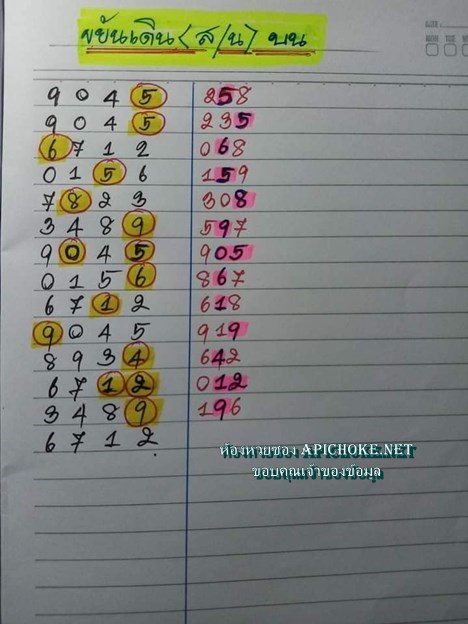 ขยันเดิน (ส/น) บน
9 0 4 5 258
9 0 4 5 235
6 7 1 2 068
0 1 5 6 159
7 8 2 3 308
3 4 8 9 597
9 0 4 5 905
0 1 5 6 867
6 7 1 2 618
9 0 4 5 919
8 9 3 4 642
6 7 1 2 012
3 4 8 9 196
6 7 1 2
ห้องหวยซอง APICHOKE.NET
ขอบคุณเจ้าของข้อมูล